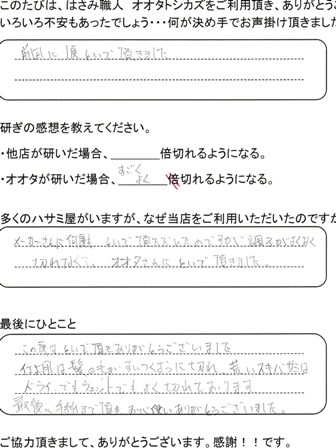 このたびは、はさみ職人　オオタトシカズをご利用頂き、ありがとうご
いろいろ不安もあったでしょう・・・何が決め手でお声掛け頂きました
前回に　といで頂きました
研ぎの感想を教えてください。
・他店が研いだ場合、＿＿＿＿倍切れるようになる。
すごく
・オオタが研いだ場合、よく倍切れるようになる。
多くのハサミ屋がいますが、なぜ当店をご利用いただいたのですか
メーカーさんに といで頂
切れなくて。オオタさんに、といで頂きました。
最後にひとこと
この度は、といで頂きありがとうございました
すいつくように切れ、荒いスキバサミは
ドライでもウェットでもよく切れております
最後、手紙まで頂き　ありがとうございました。
ご協力頂きまして、ありがとうございます。感謝！！です。